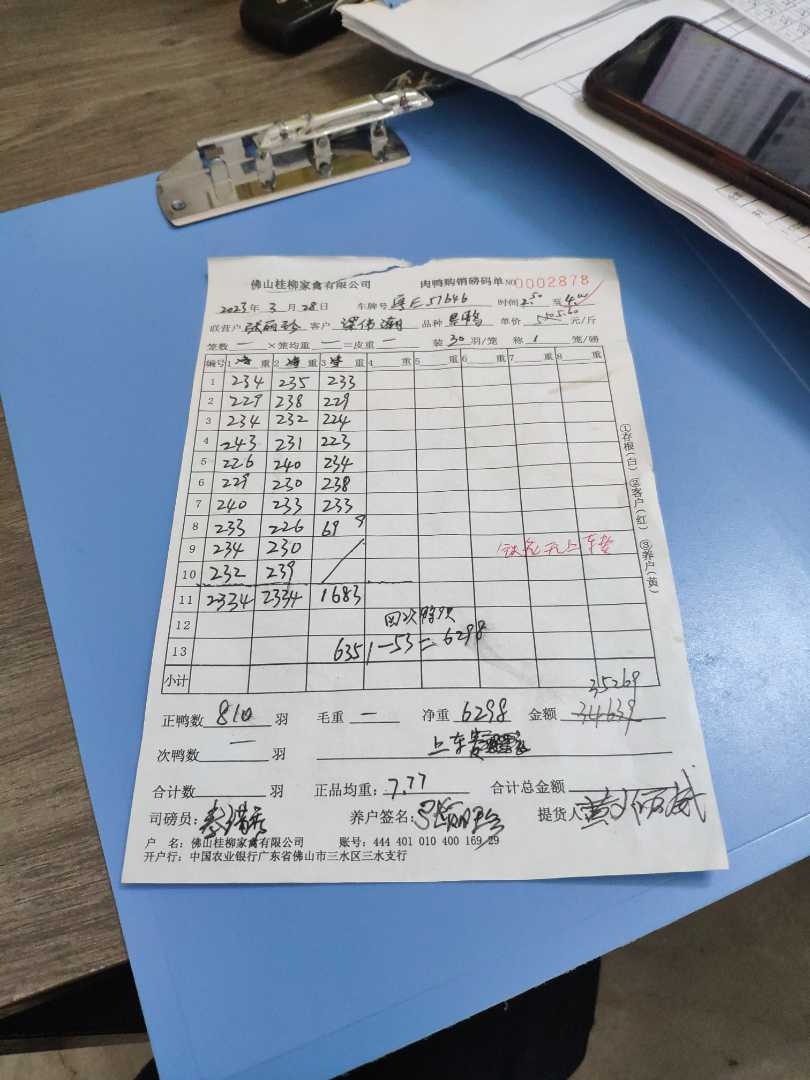 佛山桂柳家禽有限公司 肉鸭购销磅码单 NO 0002878
2023年3月28日 车牌号 粤E57646 时间 2:50 至 4:00
联营户 张丽珍 客户 梁伟潮 品种 单价 5.60 元/斤
笼数 一 ×笼均重 一 =皮重 一 装 30 羽/笼 称 1 笼/磅
编号 1 重 2 重 3 重 4 重 5 重 6 重 7 重 8 重
1 234 235 233
2 229 238 229
3 234 232 224
4 243 231 223
5 226 240 234
6 229 230 238
7 240 233 233
8 233 226 69 9
9 234 230
10 232 239
11 2334 2334 1683
12
13 6351-53=6298
小计
35269
正鸭数 810 羽 毛重 一 净重 6298 金额 34639
次鸭数 一 羽 上车
合计数 羽 正品均重: 7.77 合计总金额
司磅员: 养户签名: 张丽珍 提货人
户 名: 佛山桂柳家禽有限公司 账号: 444 401 010 400 169 29
开户行: 中国农业银行广东省佛山市三水区三水支行
①存根(白) ②客户(红) ③养户(黄)